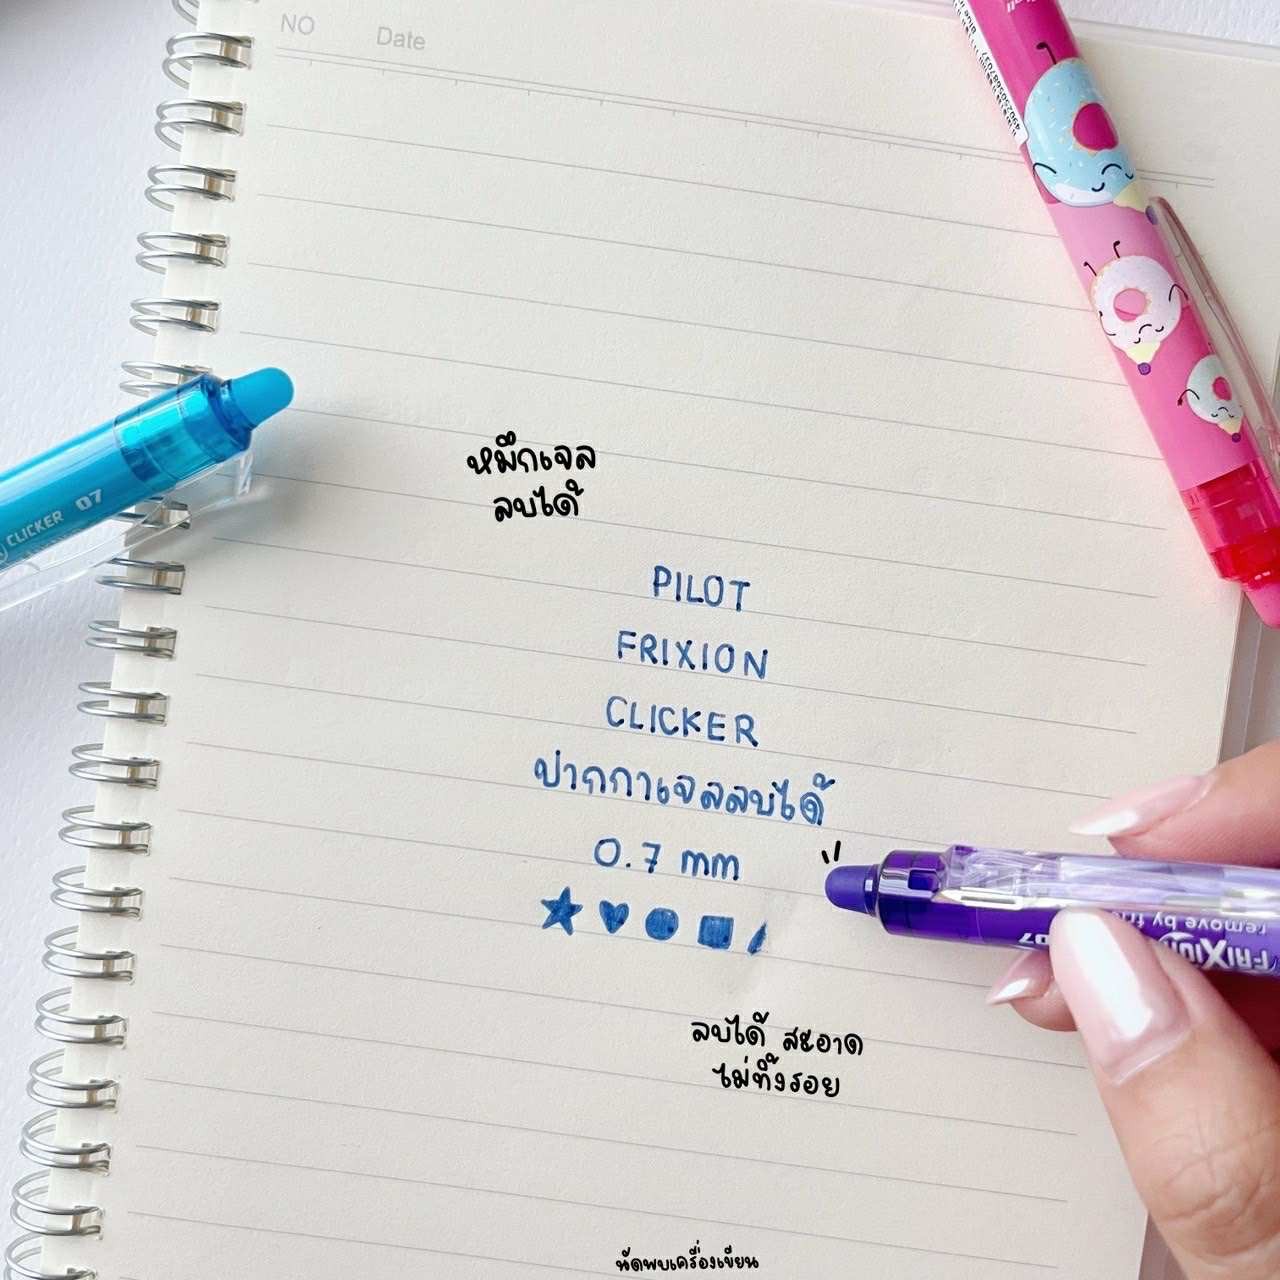 NO Date
หมึกเจล
ลบได้
CLICKER 07
PILOT
FRIXION
CLICKER
ปากกาเจลลบได้
0.7 mm
07
FRIXION
remove by fri
ลบได้ สะอาด
ไม่ทิ้งรอย
นัดพบเครื่องเขียน